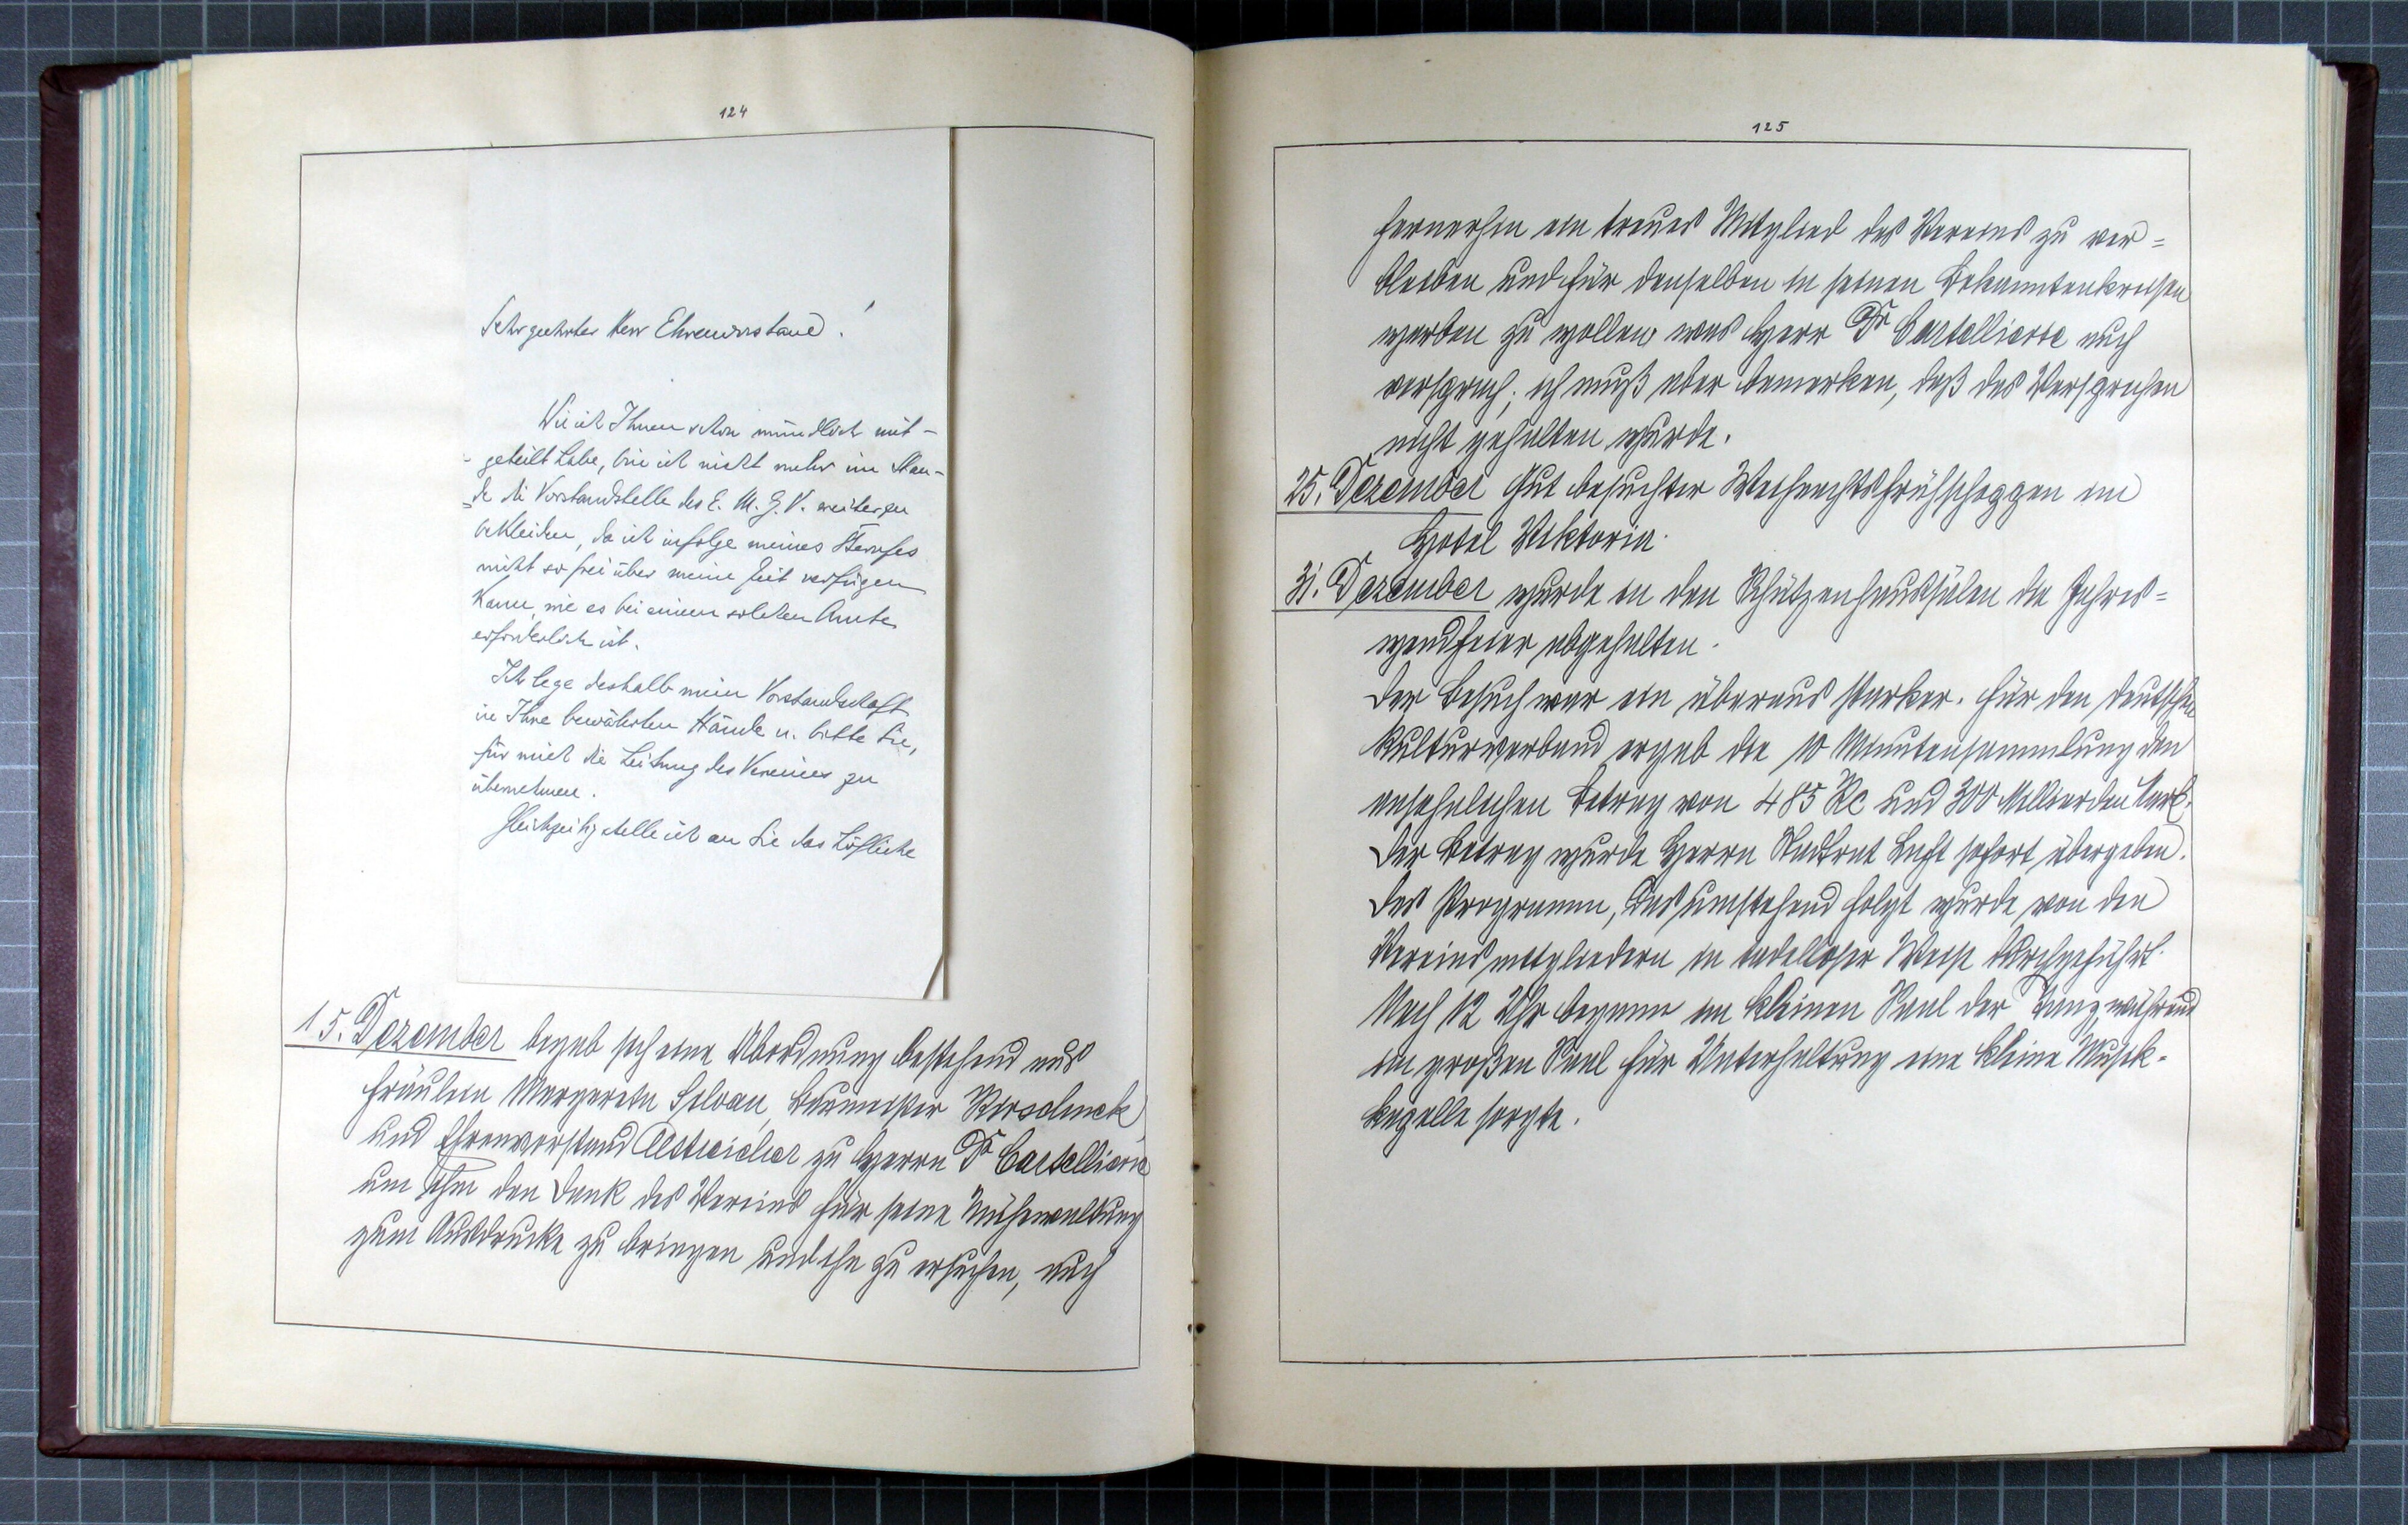 124
Sehr geehrter Herr Ehrenvorstand!
Wie ich Ihnen schon mündlich mit-
geteilt habe, bin ich nicht mehr im Stan-
de die Vorstandstelle des E. M. G. V. weiter zu
bekleiden, da ich infolge meines Berufes
nicht so frei über meine Zeit verfügen
kann, wie es bei einem solchen Amte
erforderlich ist.
Ich lege deshalb meine Vorstandschaft
in Ihre bewährten Hände u. bitte Sie,
für mich die Leitung des Vereines zu
übernehmen.
Gleichzeitig stelle ich an Sie das höfliche
15. Dezember begab sich eine Abordnung bestehend aus
Fräulein Margareta Baumeister
und Ehrenvorstand zu Herrn Dr Cartellierie
um ihm den Dank des Vereins für seine Mühewaltung
zum Ausdrucke zu bringen und ihn zu ersuchen, auch
125
fernerhin ein treues Mitglied des Vereins zu ver=
bleiben und für denselben in seinen Bekanntenkreisen
werben zu wollen was Herr Dr Cartellierie auch
versprach; ich muß aber bemerken, daß das Versprechen
nicht gehalten wurde.
25. Dezember Gut besuchter Weihnachtsfrühschoppen im
Hotel Viktoria.
31. Dezember wurde in den Schützenhaussälen die Jahres=
wendfeier abgehalten.
Der Besuch war ein überaus starker. Für den deutschen
Kulturverband ergab die 10 Minutensammlung den
ansehnlichen Betrag von 485 Kc und 300 Milliarden Mark.
Der Betrag wurde Herrn Stadtrat Luft sofort übergeben.
Das Programm, das umstehend folgt wurde von den
Vereinsmitgliedern in tadelloser Weise durchgeführt.
Nach 12 Uhr begann im kleinen Saal der Tanz, während
im großen Saal für Unterhaltung eine kleine Musik-
kapelle sorgte.